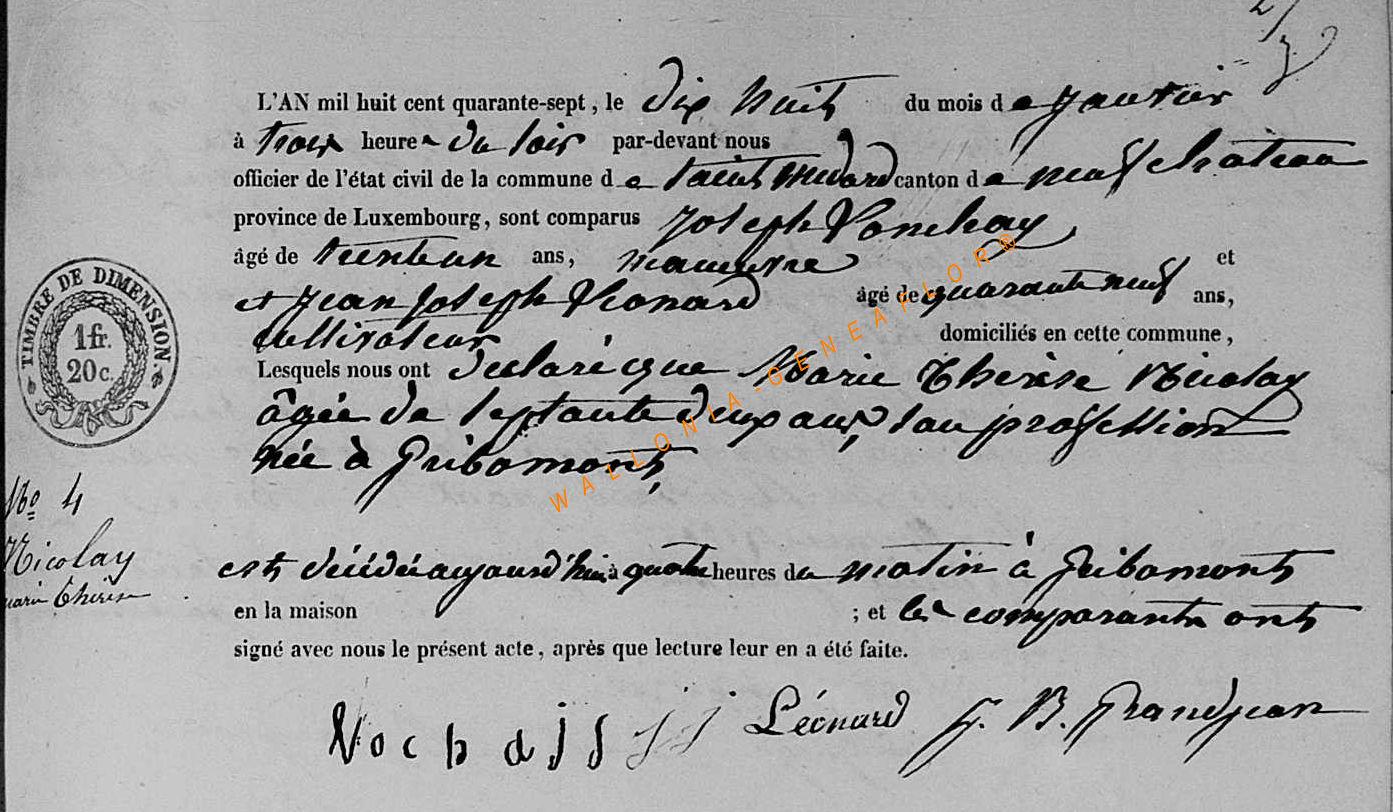 L'AN mil huit cent quarante-sept, le dix huit du mois de janvier
à trois heures du soir par-devant nous
officier de l'état civil de la commune de Saint Médard canton de neufchateau
province de Luxembourg, sont comparus Joseph
âgé de trenteun ans, manœuvre et
et Jean Joseph Léonard âgé de quarante neuf ans,
cultivateur domiciliés en cette commune,
Lesquels nous ont declaré que Marie Therèse Nicolay
âgée de septante deux ans, sau profession
née à Gribomont,
est décédée aujourd'hui à quatre heures du matin à Gribomont
en la maison ; et les comparants ont
signé avec nous le présent acte, après que lecture leur en a été faite.
Léonard J. B. Grandjean
TIMBRE DE DIMENSION
1 fr.
20 c.
No 4
Nicolay
marie Thérèse
WALLONIA-GENEAFLOR@